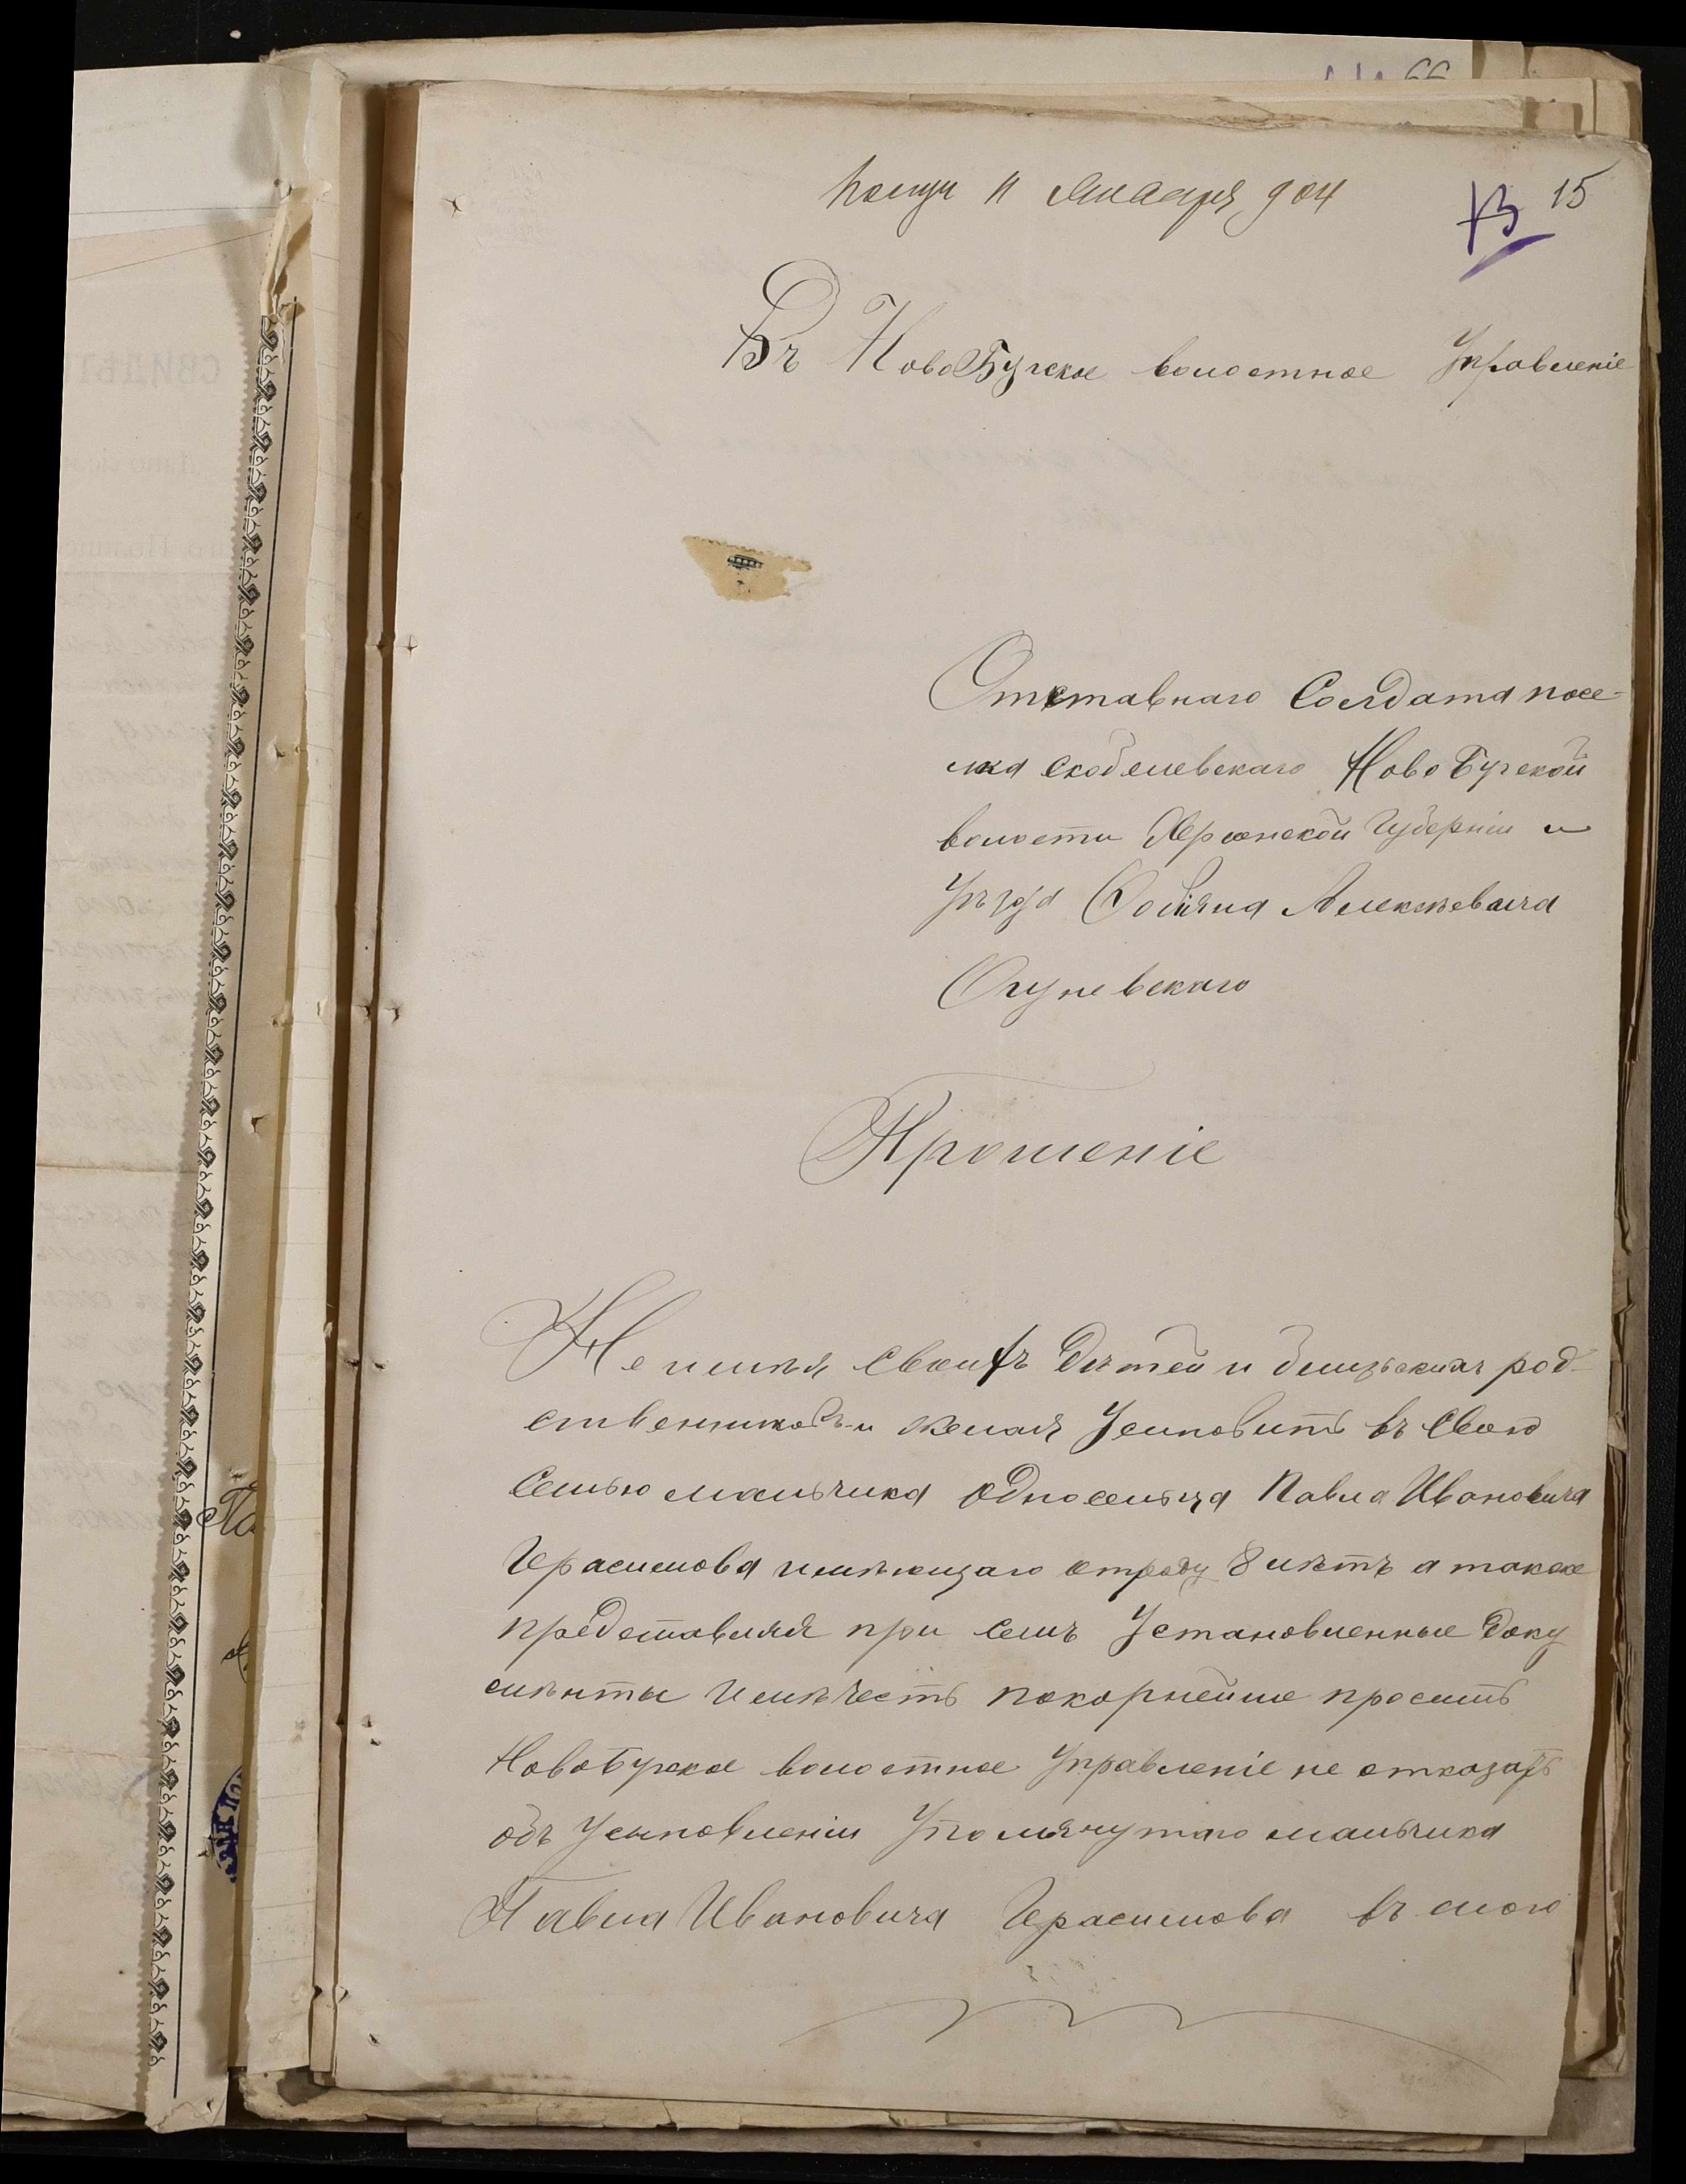 получ 11 Января 904
15
Въ НовоБугское волостное Управленіе
Отставнаго Солдата посе-
лка Скобелевскаго Ново Бугской
волости Херсонской Губерніи и
Уѣзда Алексѣевича
Огуневскаго
Прошеніе
Не имѣя своихъ Дѣтей и близьскихъ род-
ственниковъ и желая Усиновить въ Свою
Семью мальчика односельца Павла Ивановича
Герасимова имѣющаго отроду 8 лѣтъ а также
представляя при семъ Установленные Доку
мѣнты имѣю честь покорнейше просить
НовоБугское волостное Управленіе не отказать
объ Усыновленіи Упомянутаго мальчика
Павла Ивановича Герасимова въ мою